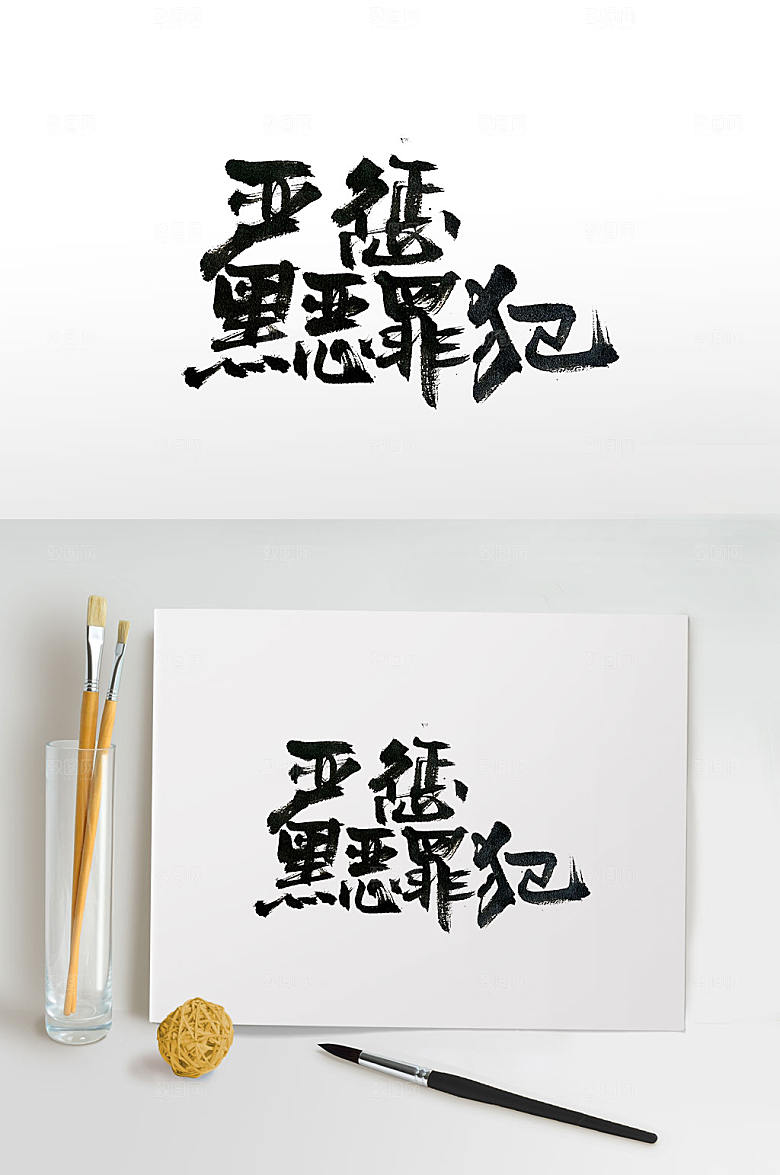 严惩
黑恶罪犯
严惩
黑恶罪犯